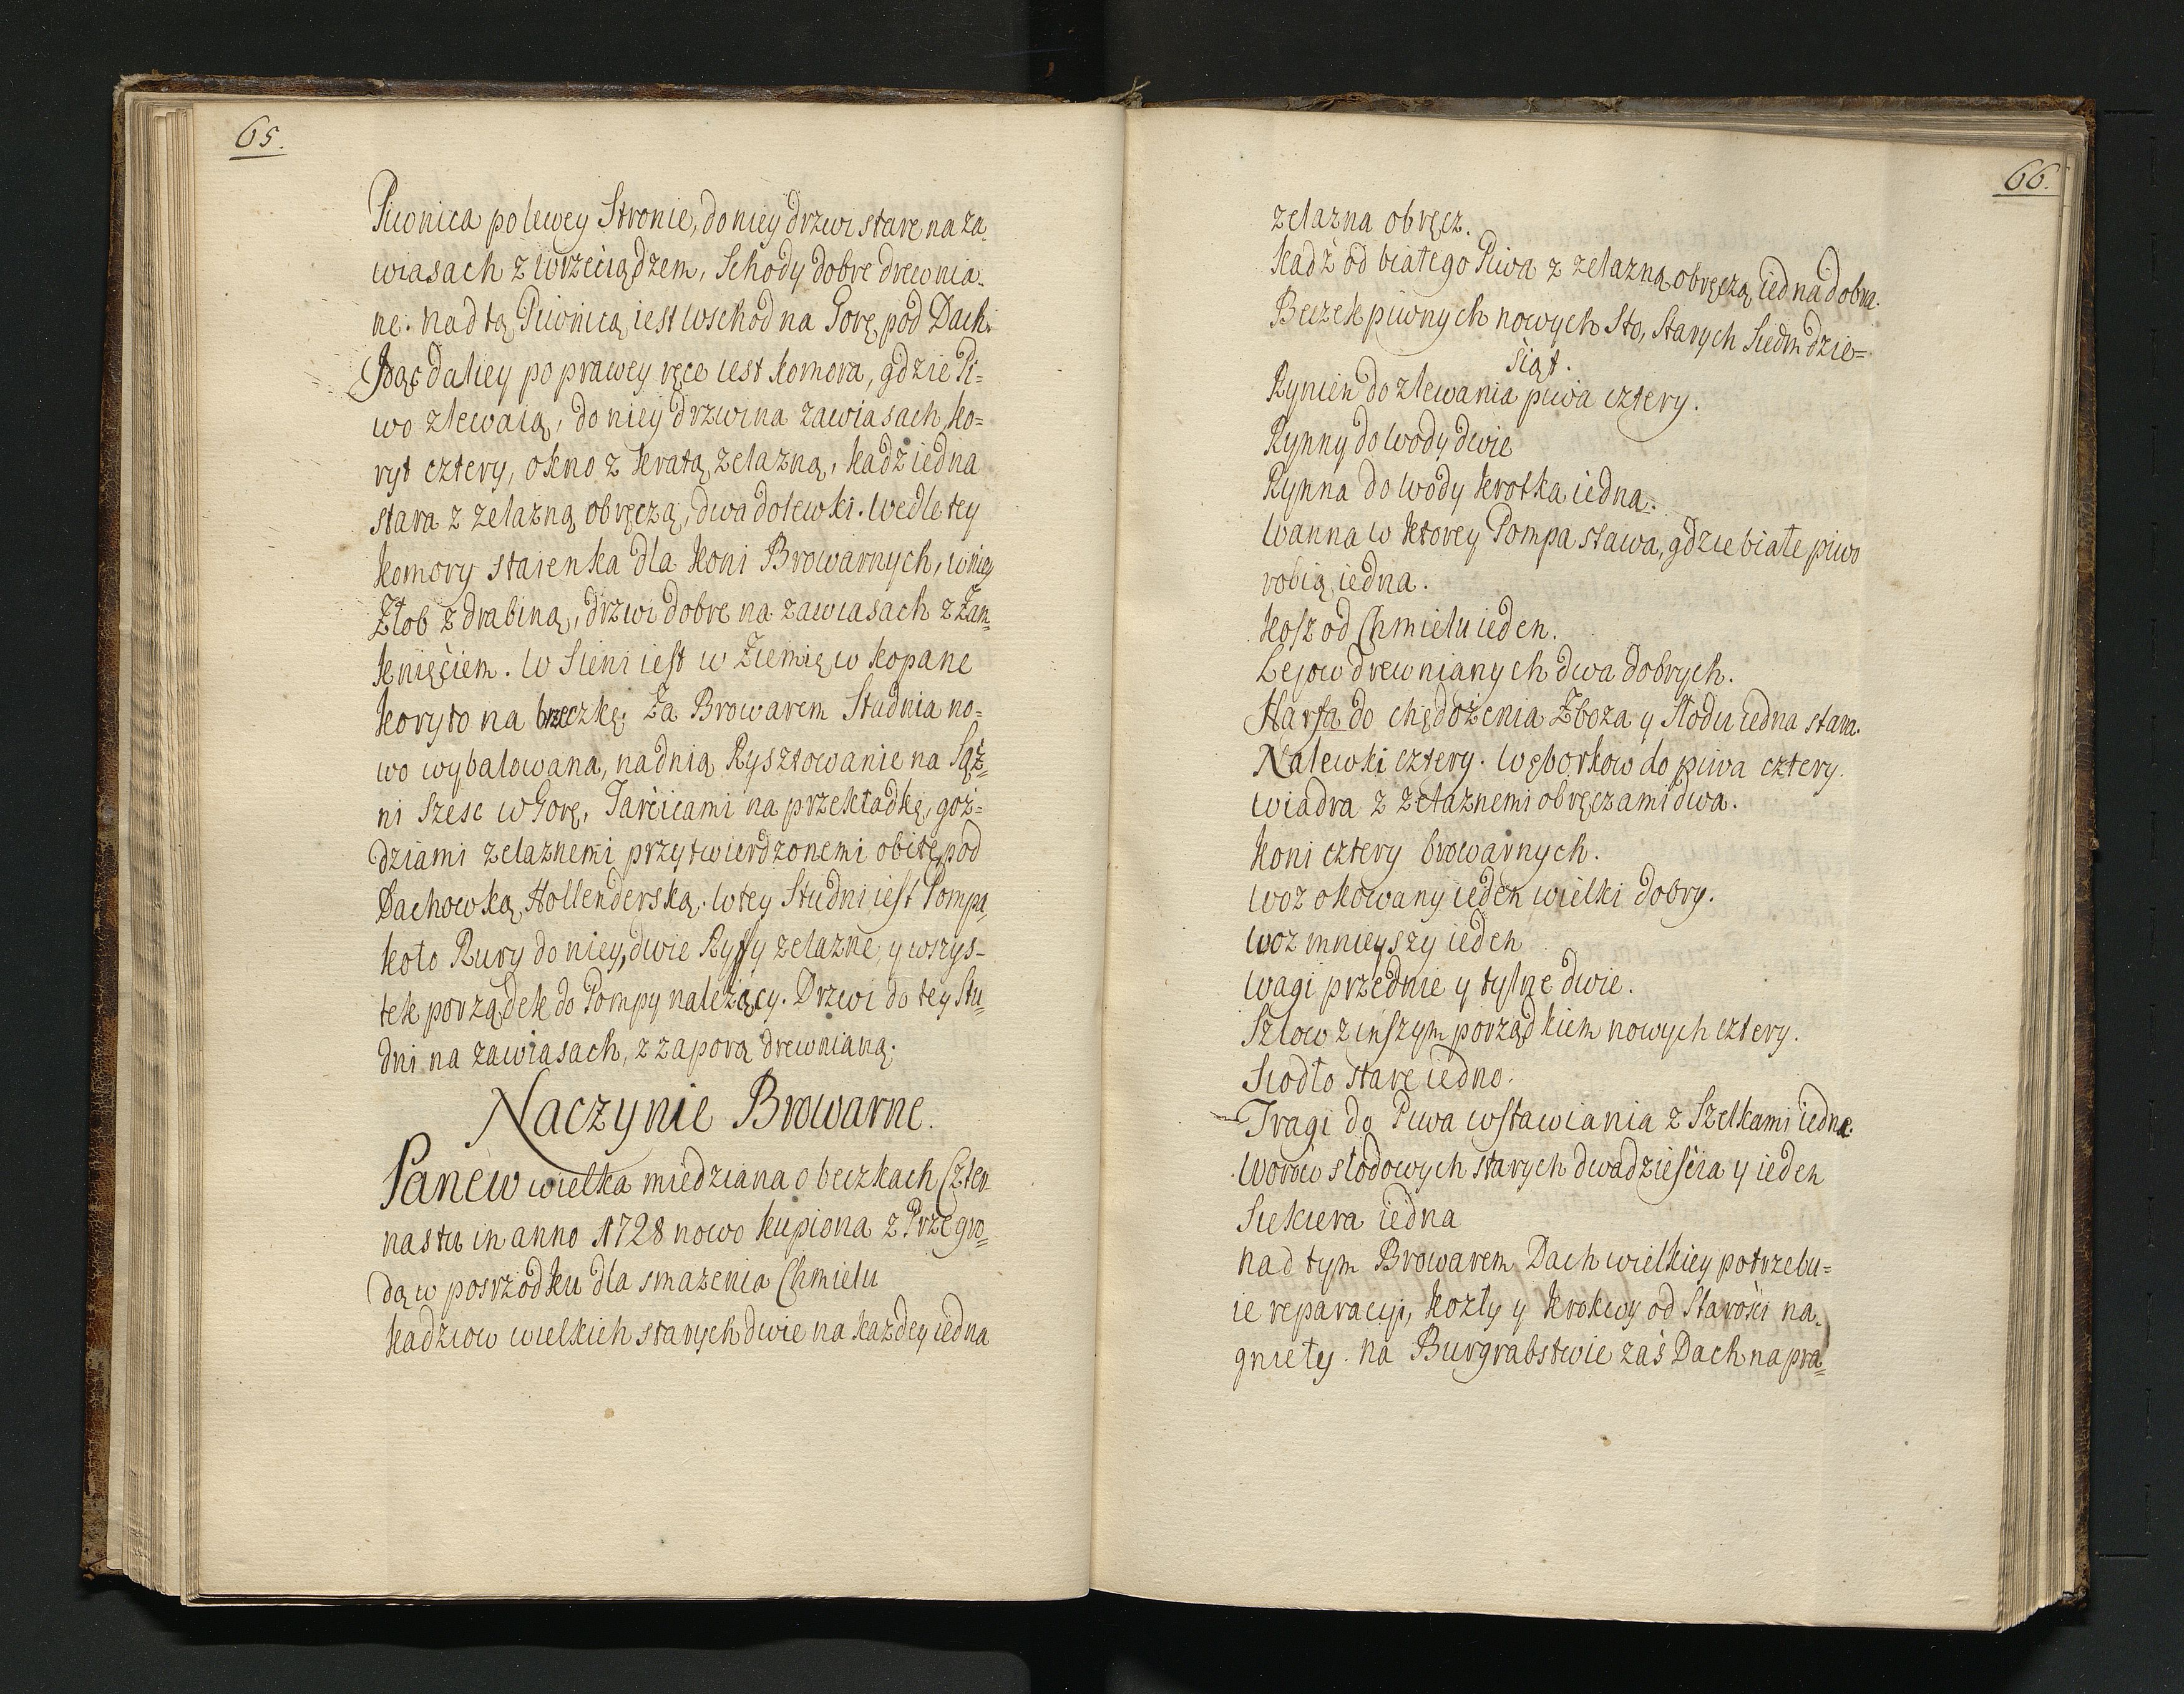 65.
Piwnica po lewey Stronie, do niey drzwi stare na za-
wiasach z wrzeciądzem, Schody dobre drewnia-
ne. nad tą Piwnicą iest wschod na Gorę pod Dach.
Idąc daliey po prawey ręce iest komora, gdzie Pi=
wo zlewaią, do niey drzwi na zawiasach, ko=
ryt cztery, okno z kratą zelazną, kadz iedna
stara z zelazną obręczą, dwa dolewki. Wedle tey
komory staienka dla koni Browarnych, w niey
Żłob z drabiną, drzwi dobre na zawiasach z Zam=
knięciem. W Sieni iest w Ziemię wkopane
koryto na brzeczkę. Za Browarem Studnia no=
wo wybalowana, nad nią Rysztowanie na Sąż=
ni szesc w Gorę, Tarcicami na przekładkę, goz=
dziami zelaznemi przytwierdzonemi obite, pod
Dachowką Hollenderską. W tey Studni iest Pompa,
koło Rury do niey, dwie Ryffy zelazne, y wszys=
tek porządek do Pompy nalezący. Drzwi do tey Stu=
dni na zawiasach, z zaporą drewnianą.
Naczynie Browarne.
Panew wielka miedziana o beczkach Czter-
nastu in anno 1728 nowo kupiona z Przegro=
dą w posrzodku dla smazenia Chmielu
kadziow wielkich starych dwie na kazdey iedna
66.
zelazna obręcz.
kadź od białego Piwa z zelazną obręczą iedna dobra.
Beczek piwnych nowych Sto, Starych Siedmdzie=
siąt.
Rynien do zlewania piwa cztery.
Rynny do wody dwie
Rynna do wody krotka iedna.
Wanna w ktorey Pompa stawa, gdzie białe piwo
robią iedna.
kosz od Chmielu ieden.
Lejow drewnianych dwa dobrych.
Harfa do chędożenia Zboza y Słodu iedna stara.
Nalewki cztery. Węborkow do piwa cztery.
wiadra z zelaznemi obręczami dwa.
koni cztery browarnych.
woz okowany ieden wielki dobry.
woz mnieyszy ieden
wagi przednie y tylne dwie.
Szlow z inszym porządkiem nowych cztery.
Siodło stare iedno.
Tragi do Piwa wstawiania z Szelkami iedne.
Worow słodowych starych dwadzieścia y ieden
Siekiera iedna
nad tym Browarem Dach wielkiey potrzebu=
ie reparacyi, kozły y krokwy od Starości na-
gnieły. na Burgrabstwie zaś Dach napra=